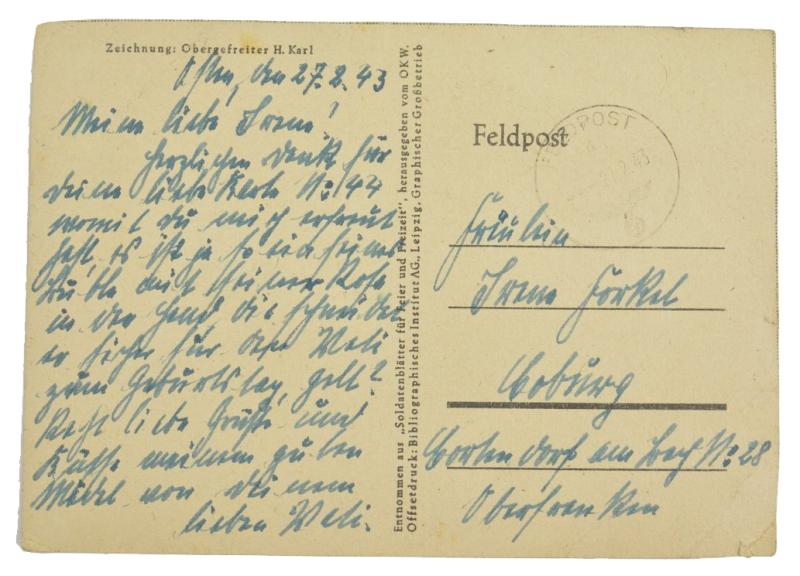 Zeichnung: Obergefreiter H. Karl
Osten, den 27.2.43
Meine liebe Irene!
Herzlichen Dank für
deine liebe Karte No: 44
womit du mich erfreut
hast, es ist ja so ein feiner
Buble mit seiner Rose
in der Hand, die
er sicher für den Vali
zum Geburtstag, gell?
Recht liebe Grüße und
Küsse meinem guten
Mädel von deinem
lieben Vali.
Entnommen aus „Soldatenblätter für Feier und Freizeit", herausgegeben vom OKW.
Offsetdruck: Bibliographisches Institut AG., Leipzig, Graphischer Großbetrieb
Feldpost
FELDPOST
2.43
Fräulein
Irene Forkel
Coburg
Cortendorf am No: 28
Oberfranken